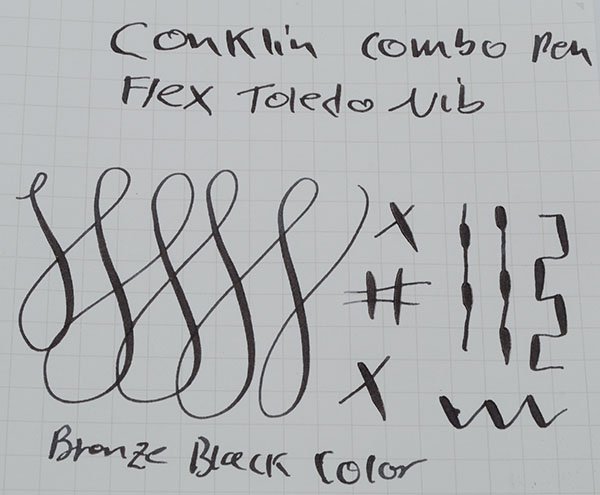 Conklin combo Pen
Flex Toledo Nib
x
#
x
Bronze Black Color